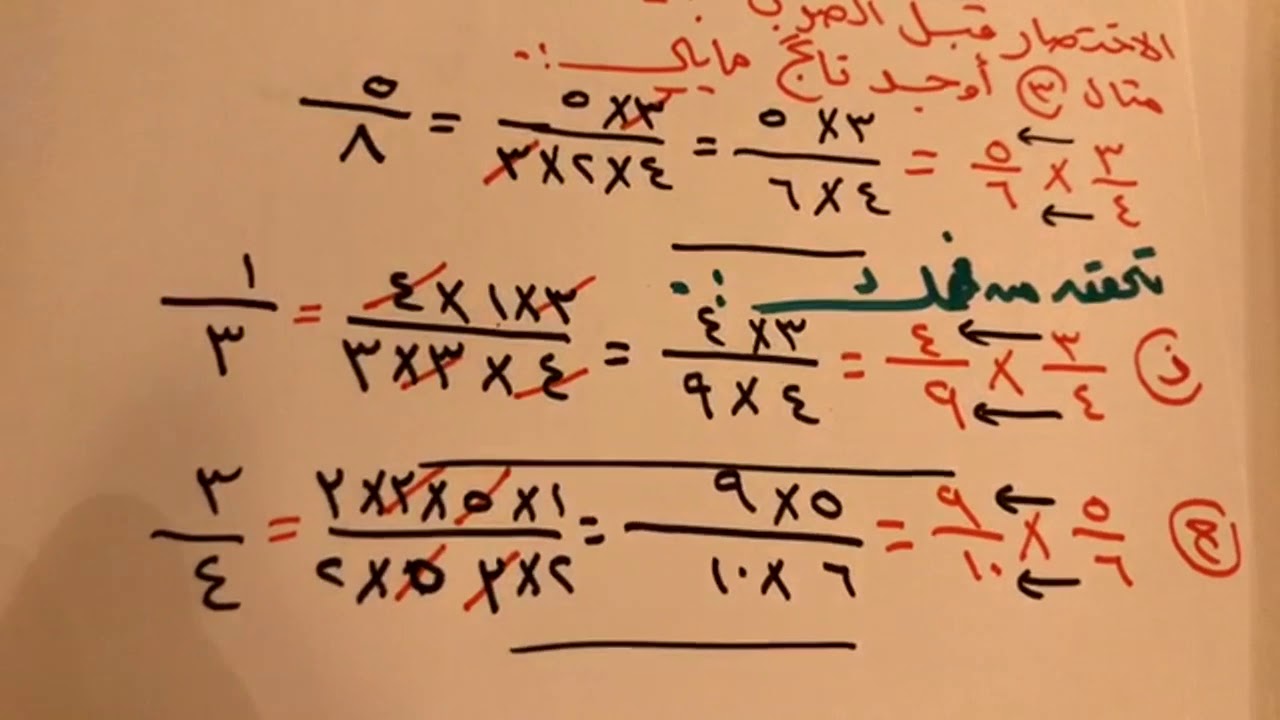 الاختصار قبل الضرب :-
مثال ٣ أوجد ناتج مايلي :-
٣/٤ × ٥/٦ = ٣×٥/٤×٦ = ٣×٥/٤×٢×٣ = ٥/٨
تحقق من فهمك :-
ز ٣/٤ × ٤/٩ = ٣×٤/٤×٩ = ٣×١×٤/٤×٣×٣ = ١/٣
ح ٥/٦ × ٩/١٠ = ٥×٩/٦×١٠ = ١×٥×٣×٣/٢×٣ ٥×٢ = ٣/٤